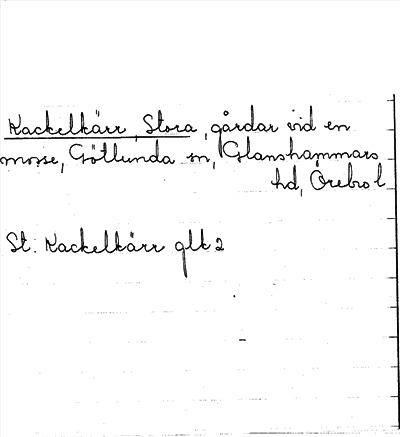 Kackelkärr, Stora, gårdar vid en
mosse, Götlunda sn, Glanshammars
hd, Örebro l.
St. Kackelkärr glk 2